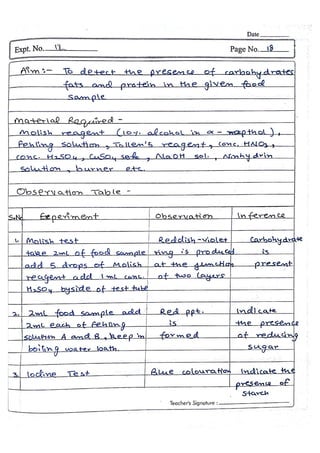 Date
Expt. No. 12
Page No. 18
Aim:- To detect the presence of carbohydrates
fats and protein in the given food
sample
Material Required -
Molish reagent (10% alcohol in α- napthol),
Fehling solution, Tollen's reagent, conc. HNO3,
conc. H2SO4, CuSO4 sol., NaOH sol., Ninhydrin
solution, burner etc.
Observation Table -
S.No Experiment Observation Inference
1. Molish test Reddish-violet Carbohydrate
take 2mL of food sample ring is produced is
add 5 drops of Molish at the junction present
reagent add 1mL conc. of two layers
H2SO4 by side of test tube
2. 2mL food sample add Red ppt. Indicate
2mL each of fehling is the presence
solution A and B, keep in formed of reducing
boiling water bath. sugar
3. Iodine Test Blue colouration Indicate the
presence of
starch
Teacher's Signature :